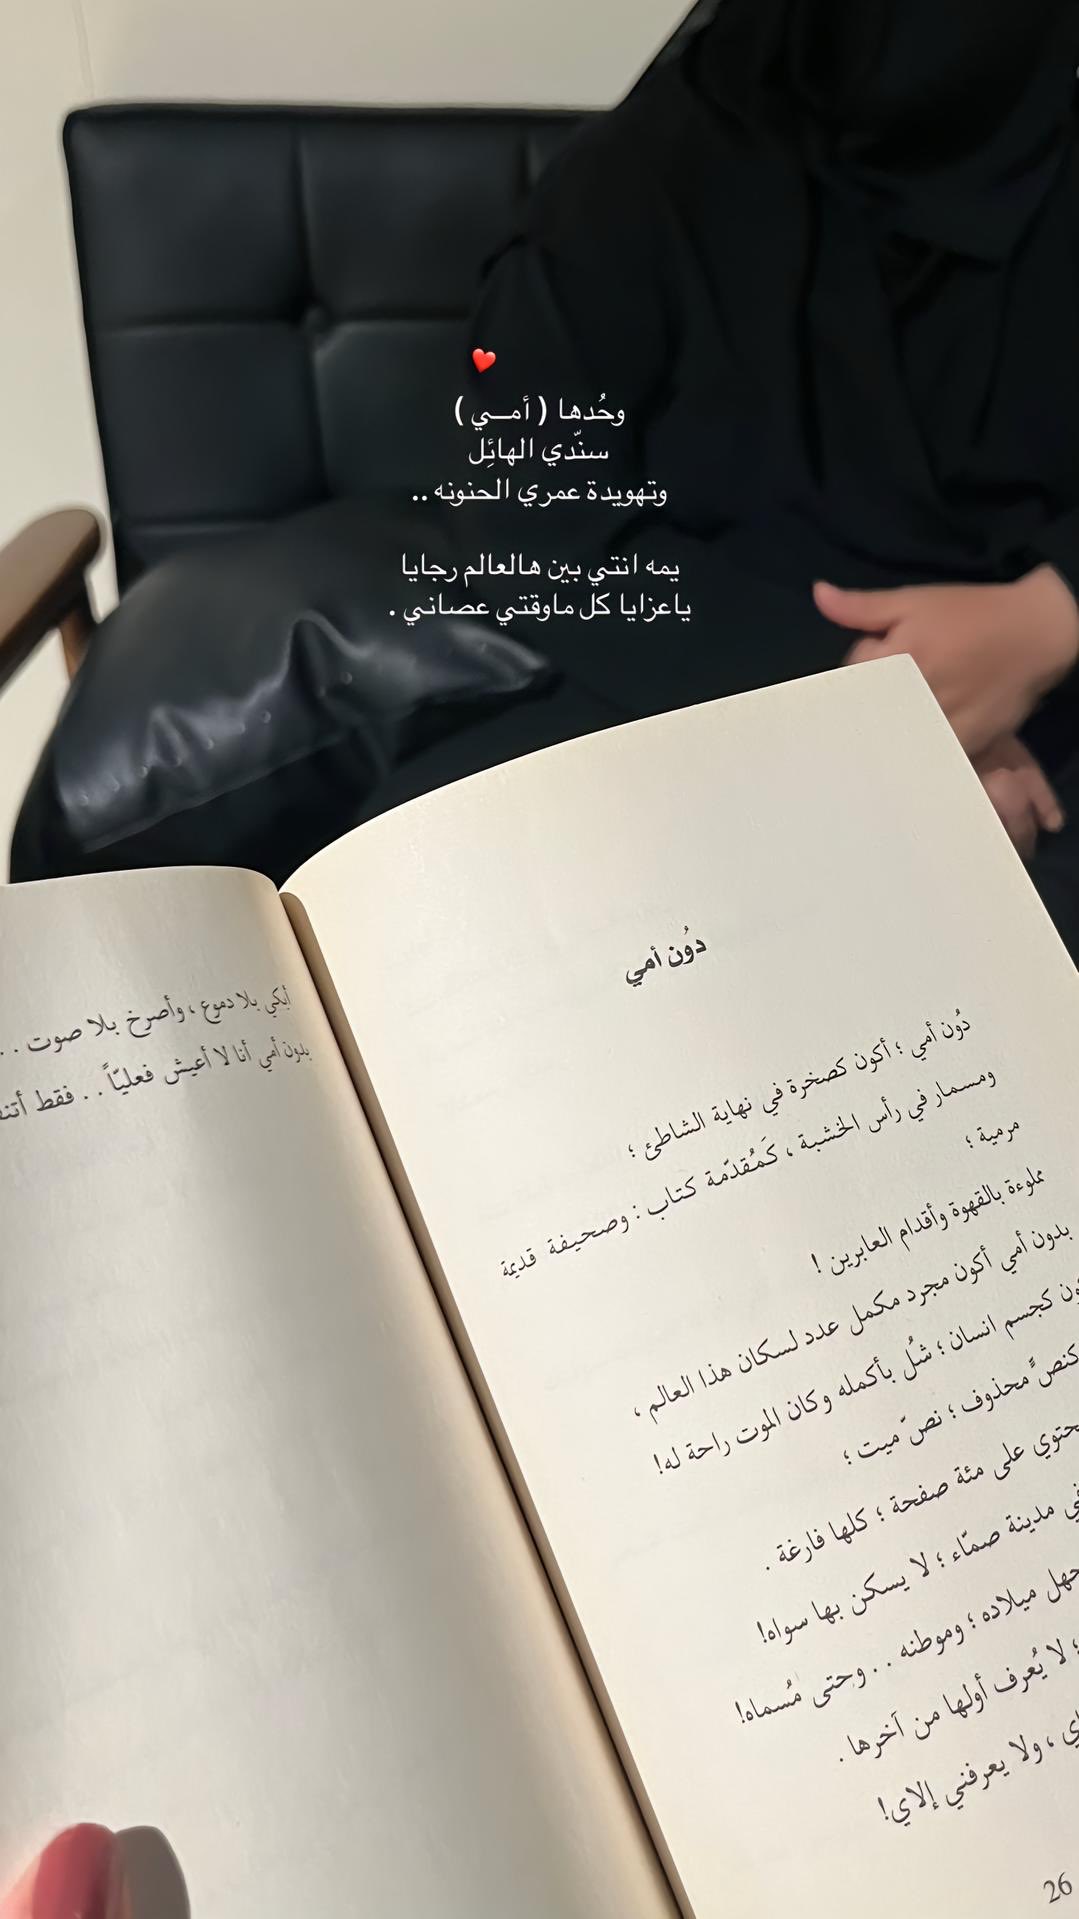 ❤️
وحُدها ( أمـــي )
سنّدي الهائِل
وتهويدة عمري الحنونه ..
يمه انتي بين هالعالم رجايا
ياعزايا كل ماوقتي عصاني .
دوُن أمي
دُون أمي ؛ أكون كصخرة في نهاية الشاطئ ؛
ومسمار في رأس الخشبة ، كَمُقدّمة كتاب : وصحيفة قديمة
مرمية ؛
مملوءة بالقهوة وأقدام العابرين !
بدون أمي أكون مجرد مكمل عدد لسكان هذا العالم ،
كجسم انسان ؛ شُل بأكمله وكان الموت راحة له!
كنصٍّ محذوف ؛ نصّ ميت ؛
على مئة صفحة ؛ كلها فارغة .
مدينة صمّاء ؛ لا يسكن بها سواه!
ميلاده ؛ وموطنه . . وحتى مُسماه!
لا يُعرف أولها من آخرها .
، ولا يعرفني إلاي!
26
أبكي بلا دموع ، وأصرخ بلا صوت . .
بدون أمي أنا لا أعيش فعليّاً . . فقط